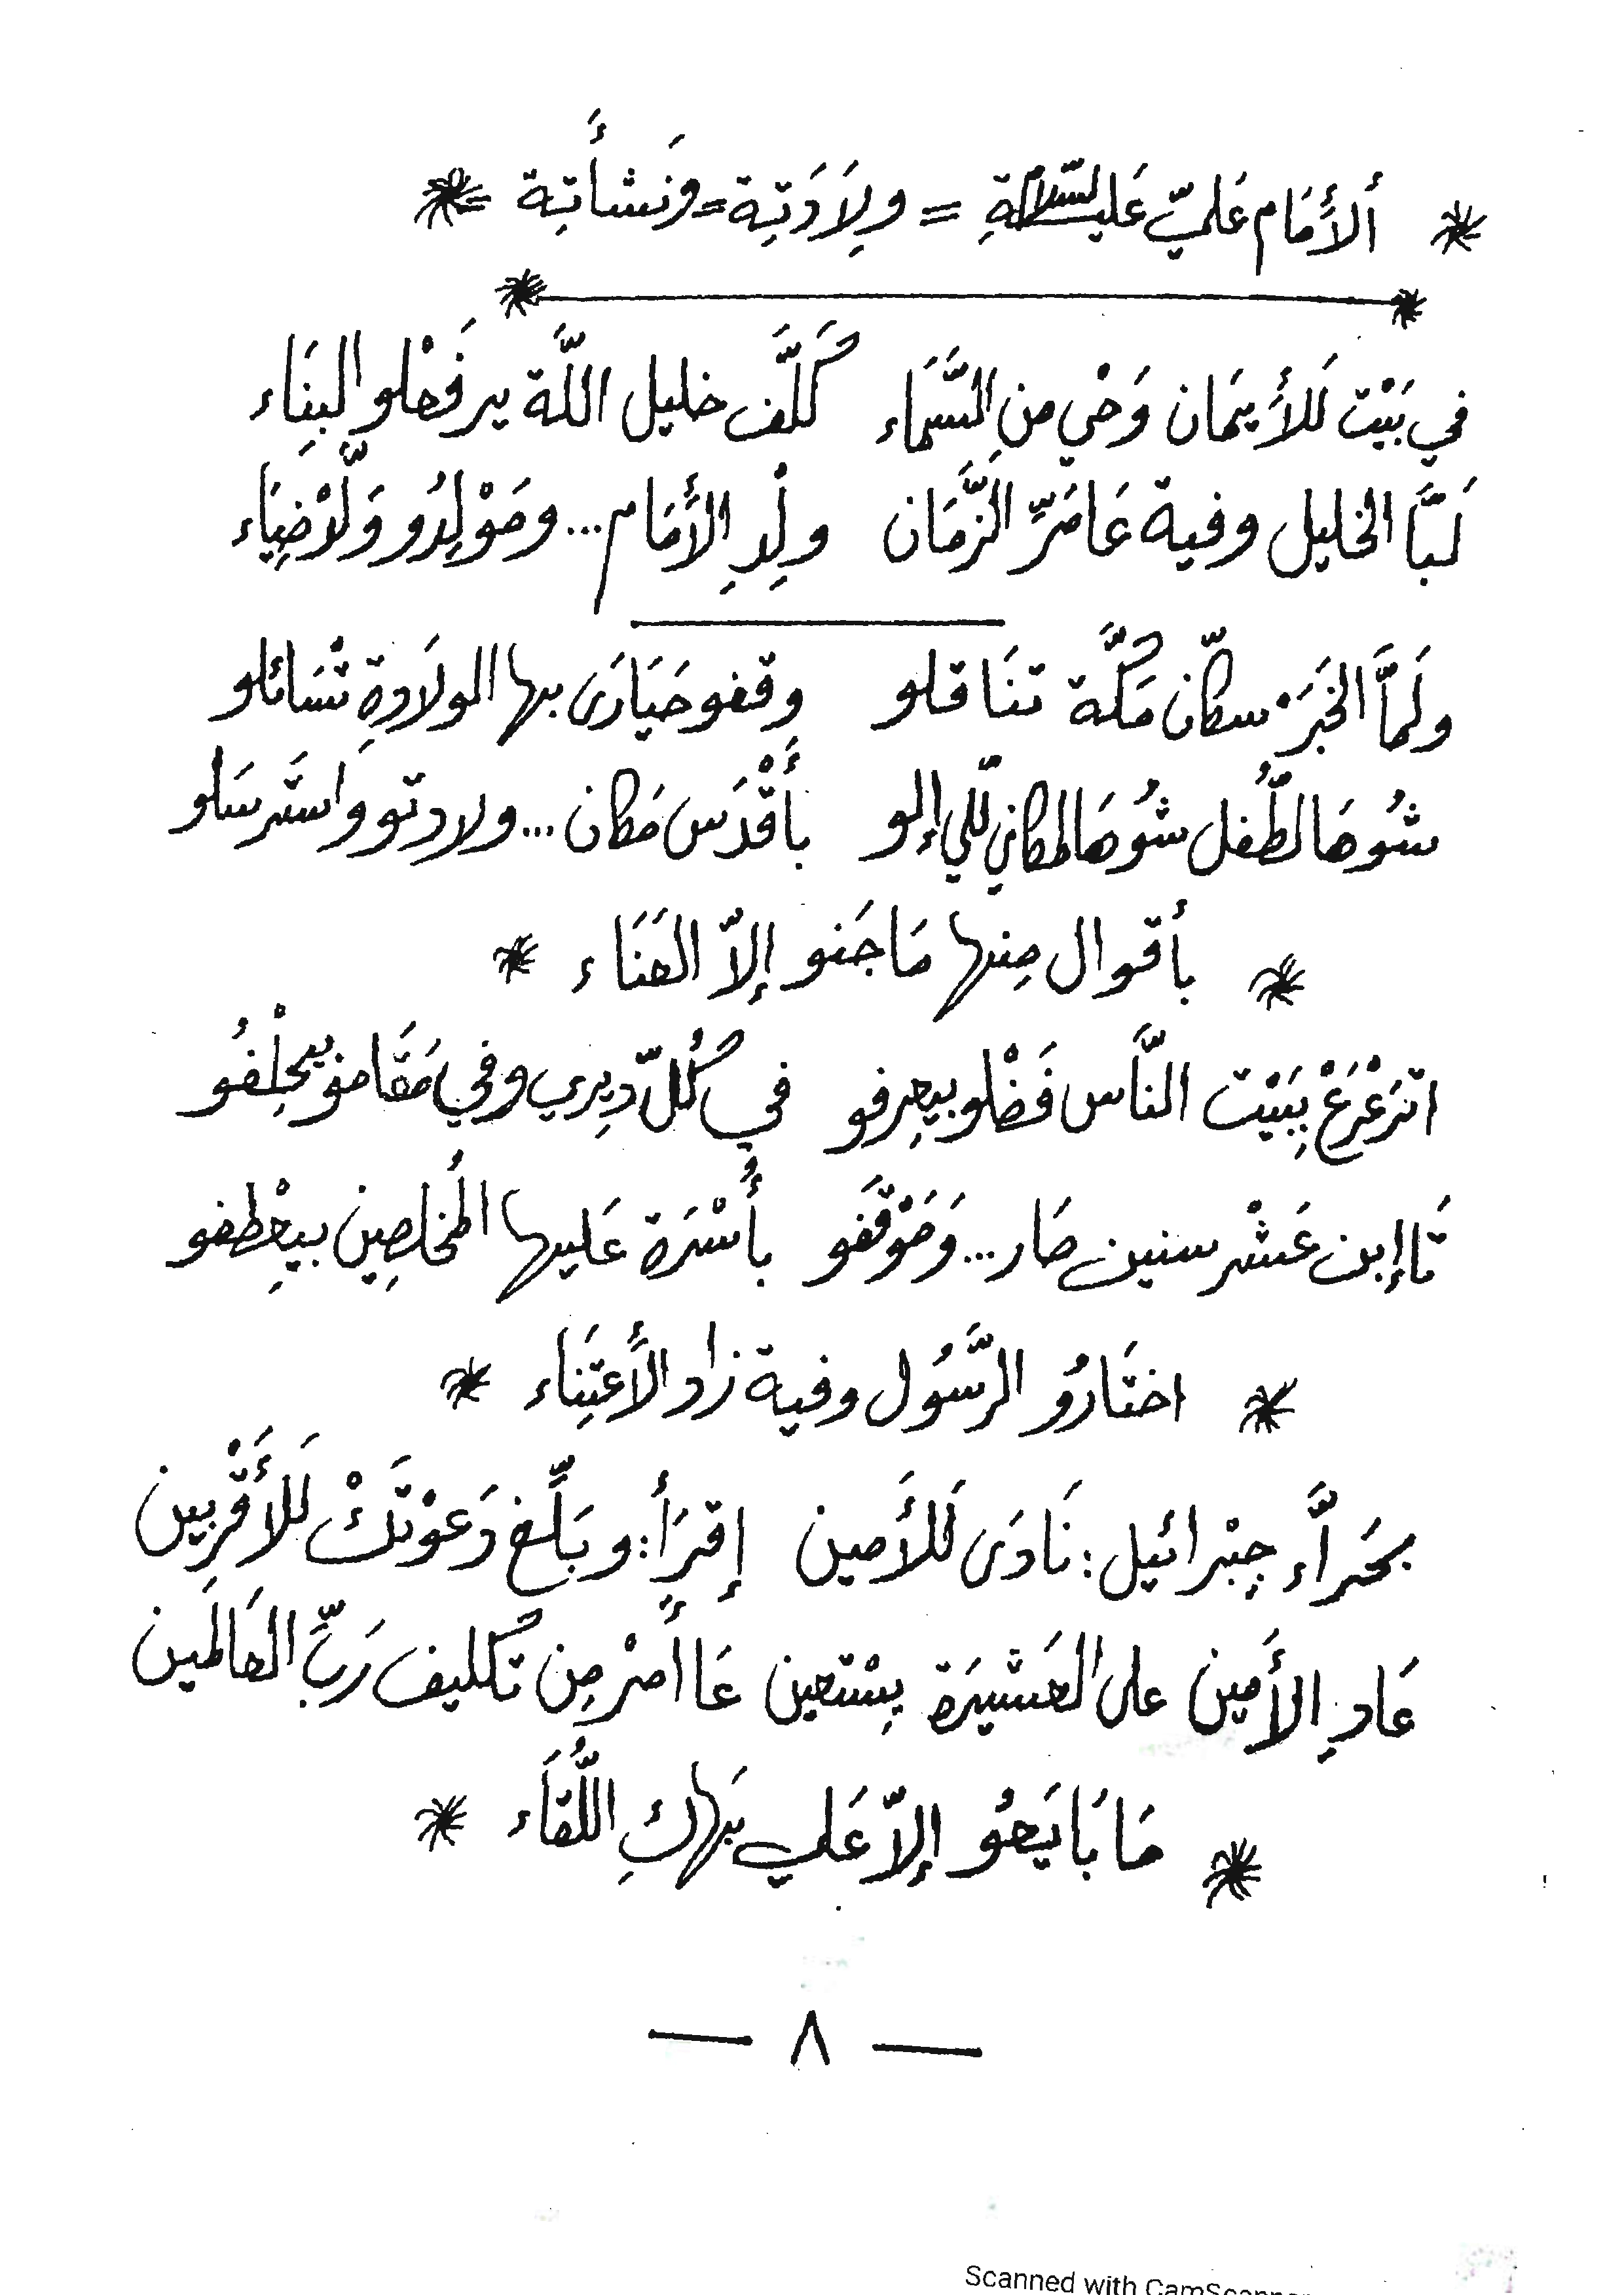 ألأَمَام عَلميّ عَليه السّلامةِ = وِلاَدَتِة = وَنَشأَتِة
في بَيْت لَلأَيمَان وَحْي منِ السَّمَاء كَلَّف خليل اللَّة يرفَعْلو البِنَاء
لَبَّا الخليل وفية عَامَرِّ الزَّمَان ولِدِ الأَمَام... ومَوْلِدُو وَلَّا ضِيَاء
ولَمَّا الخَبَر سكّان مَكَّة تنَاقلو وقفو حَيَارَى بها الولاَدةِ تْسَائلو
شُو هَا لطُّفل شُو هَا لمكانِ للّي إلو بأَقْدَس مَكان... ولادتو واستَرسَلو
بأقوال مِنها مَا جَنو إلاّ العَنَاء
اترَعْرَعْ بِبَيْت النَّاس فَضْلو بيعِرفو في كُلّ دِيري وفي مَقَامو بيحْلِفُو
تَا إبن عَشْر سنين صَار... وَمَوْقَفو بأُسْرَة عَليها المُخلصِين بيِعْطفو
اختَارُو الرَّسُول وفية زاد الأَعتِنَاء
بحَرَّاء جِبْرائيل: نَادَى لَلأَمين إقرَأ: وبَلِّغ دَعوْتَكْ لَلأَقْرِبين
عَادِ الأَمين على العَشيرَة يِسْتعين عَا أَمرْ مِن تَكليف رَبِّ العَالَمين
مَا بَايَعُو إلاّ عَلي بَهاكِ اللُّقَاء
— ٨ —
Scanned with CamScanner